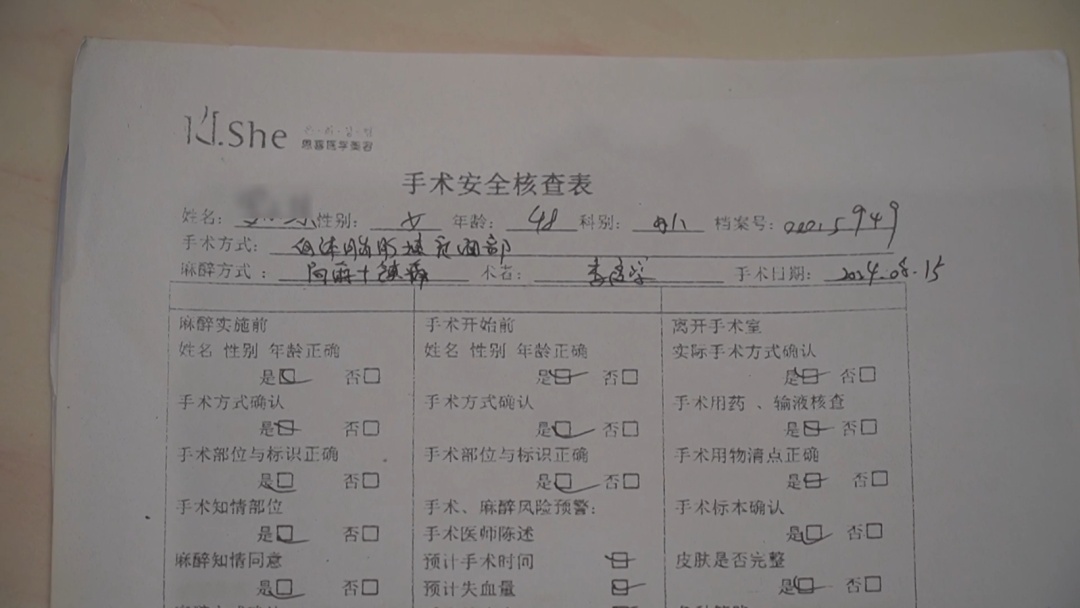 .She
思喜医学美容
手术安全核查表
姓名: 性别: 女 年龄: 48 科别: 档案号: 00215949
手术方式: 自体脂肪填充面部
麻醉方式: 局麻+镇痛 术者: 手术日期: 2024.08.15
麻醉实施前 手术开始前 离开手术室
姓名 性别 年龄正确 姓名 性别 年龄正确 实际手术方式确认
是□ 否□ 是□ 否□ 是□ 否□
手术方式确认 手术方式确认 手术用药、输液核查
是□ 否□ 是□ 否□ 是□ 否□
手术部位与标识正确 手术部位与标识正确 手术用物清点正确
是□ 否□ 是□ 否□ 是□ 否□
手术知情部位 手术、麻醉风险预警: 手术标本确认
是□ 否□ 手术医师陈述 是□ 否□
麻醉知情同意 预计手术时间 □ 皮肤是否完整
是□ 否□ 预计失血量 □ 是□ 否□